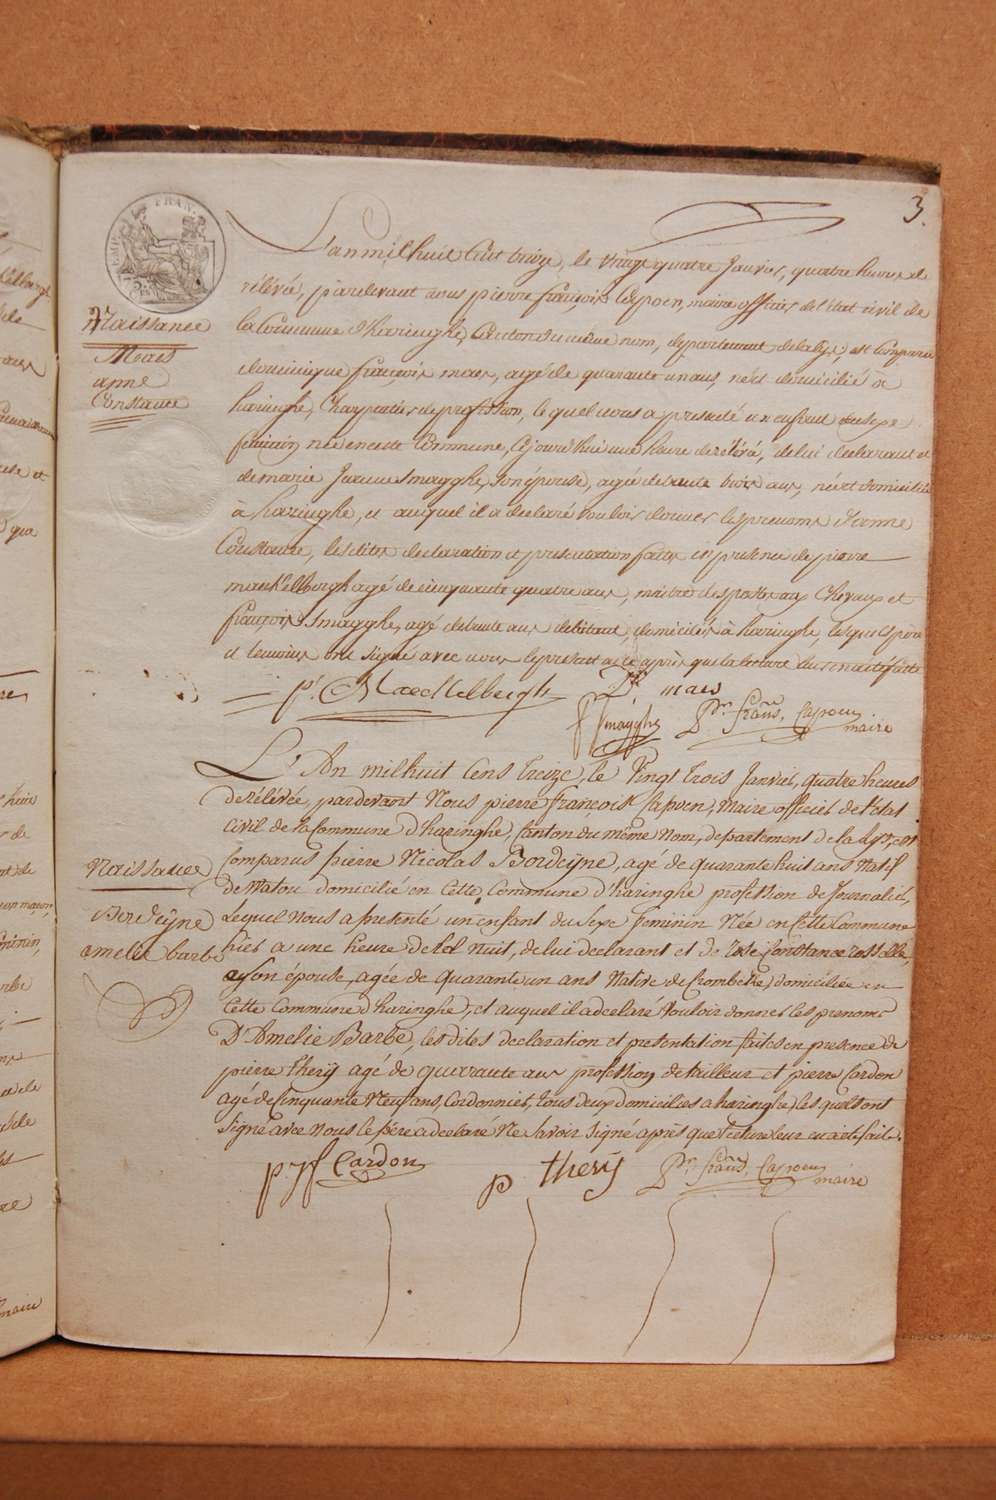 3.
EMPIRE FRAN.
Naissance
Maes
anne
Constance
L'an mil huit Cent treize, le vingt quatre Janvier, quatre heures de
rélévée, pardevant nous pierre françois Capoen, maire officier de l'état civil de
la Commune d'haringhe, Canton du même nom, departement de la Lys, est Comparu
dominique françois maes, agé de quarante un ans, né et domicilié à
haringhe, Charpentier de profession, le quel nous a presenté un enfant du sexe
feminin née en cette Commune, cejourd'hui une heure de rélévé, de lui declarant et
de marie Jacne Smagghe, son épouse, agé de trente trois ans, né et domicilié
à haringhe, et auquel il a declaré vouloir donner les prenoms d'anne
Constance, les dites declaration et presentation faites en presence de pierre
maeckelbergh agé de cinquante quatre ans, maitre des postes aux Chevaux et
françois Smagghe, agé de trente ans debitant, domiciliés à haringhe, lesquels père
et temoins ont signé avec nous le present acte après que la lecture leur en a été fait
pr. Maeckelbergh
D. maes
f Smagghe
Prre frans. Capoen
maire
L'An mil huit Cens treize, le Vingt trois Janvier, quatre heures
de rélévée, pardevant Nous pierre François Capoen, Maire officier de l'état
Civil de la Commune d'haringhe, Canton du même Nom, departement de la Lys, est
Naissance
Comparus pierre Nicolas Bordeÿne, agé de quarante huit ans Natif
de Watou domicilié en Cette Commune d'haringhe profession de Journalier,
Bordeÿne
Lequel Nous a presenté un enfant du Sexe feminin Née en Cette Commune
amelie barbe
hier a une heure de nuit, de lui declarant et de rose Constance rosselle,
son épouse, agée de quarante un ans Native de Crombeke, domiciliée en
Cette Commune d'haringhe, et auquel il a declaré Vouloir donner les prenoms
D'Amelie Barbe, les dites declaration et presentation faites en presence de
pierre therÿ agé de querraute ans profession de tailleur et pierre Cardon
agé de Cinquante Neuf ans, Cordonnier, tous deux domiciliés a haringhe, les quels ont
Signé avec Nous le père a declaré Ne Savoir Signé après que lecture leur en a été faite.
p. j f Cardon
p therÿ
Prre frans. Capoen
maire